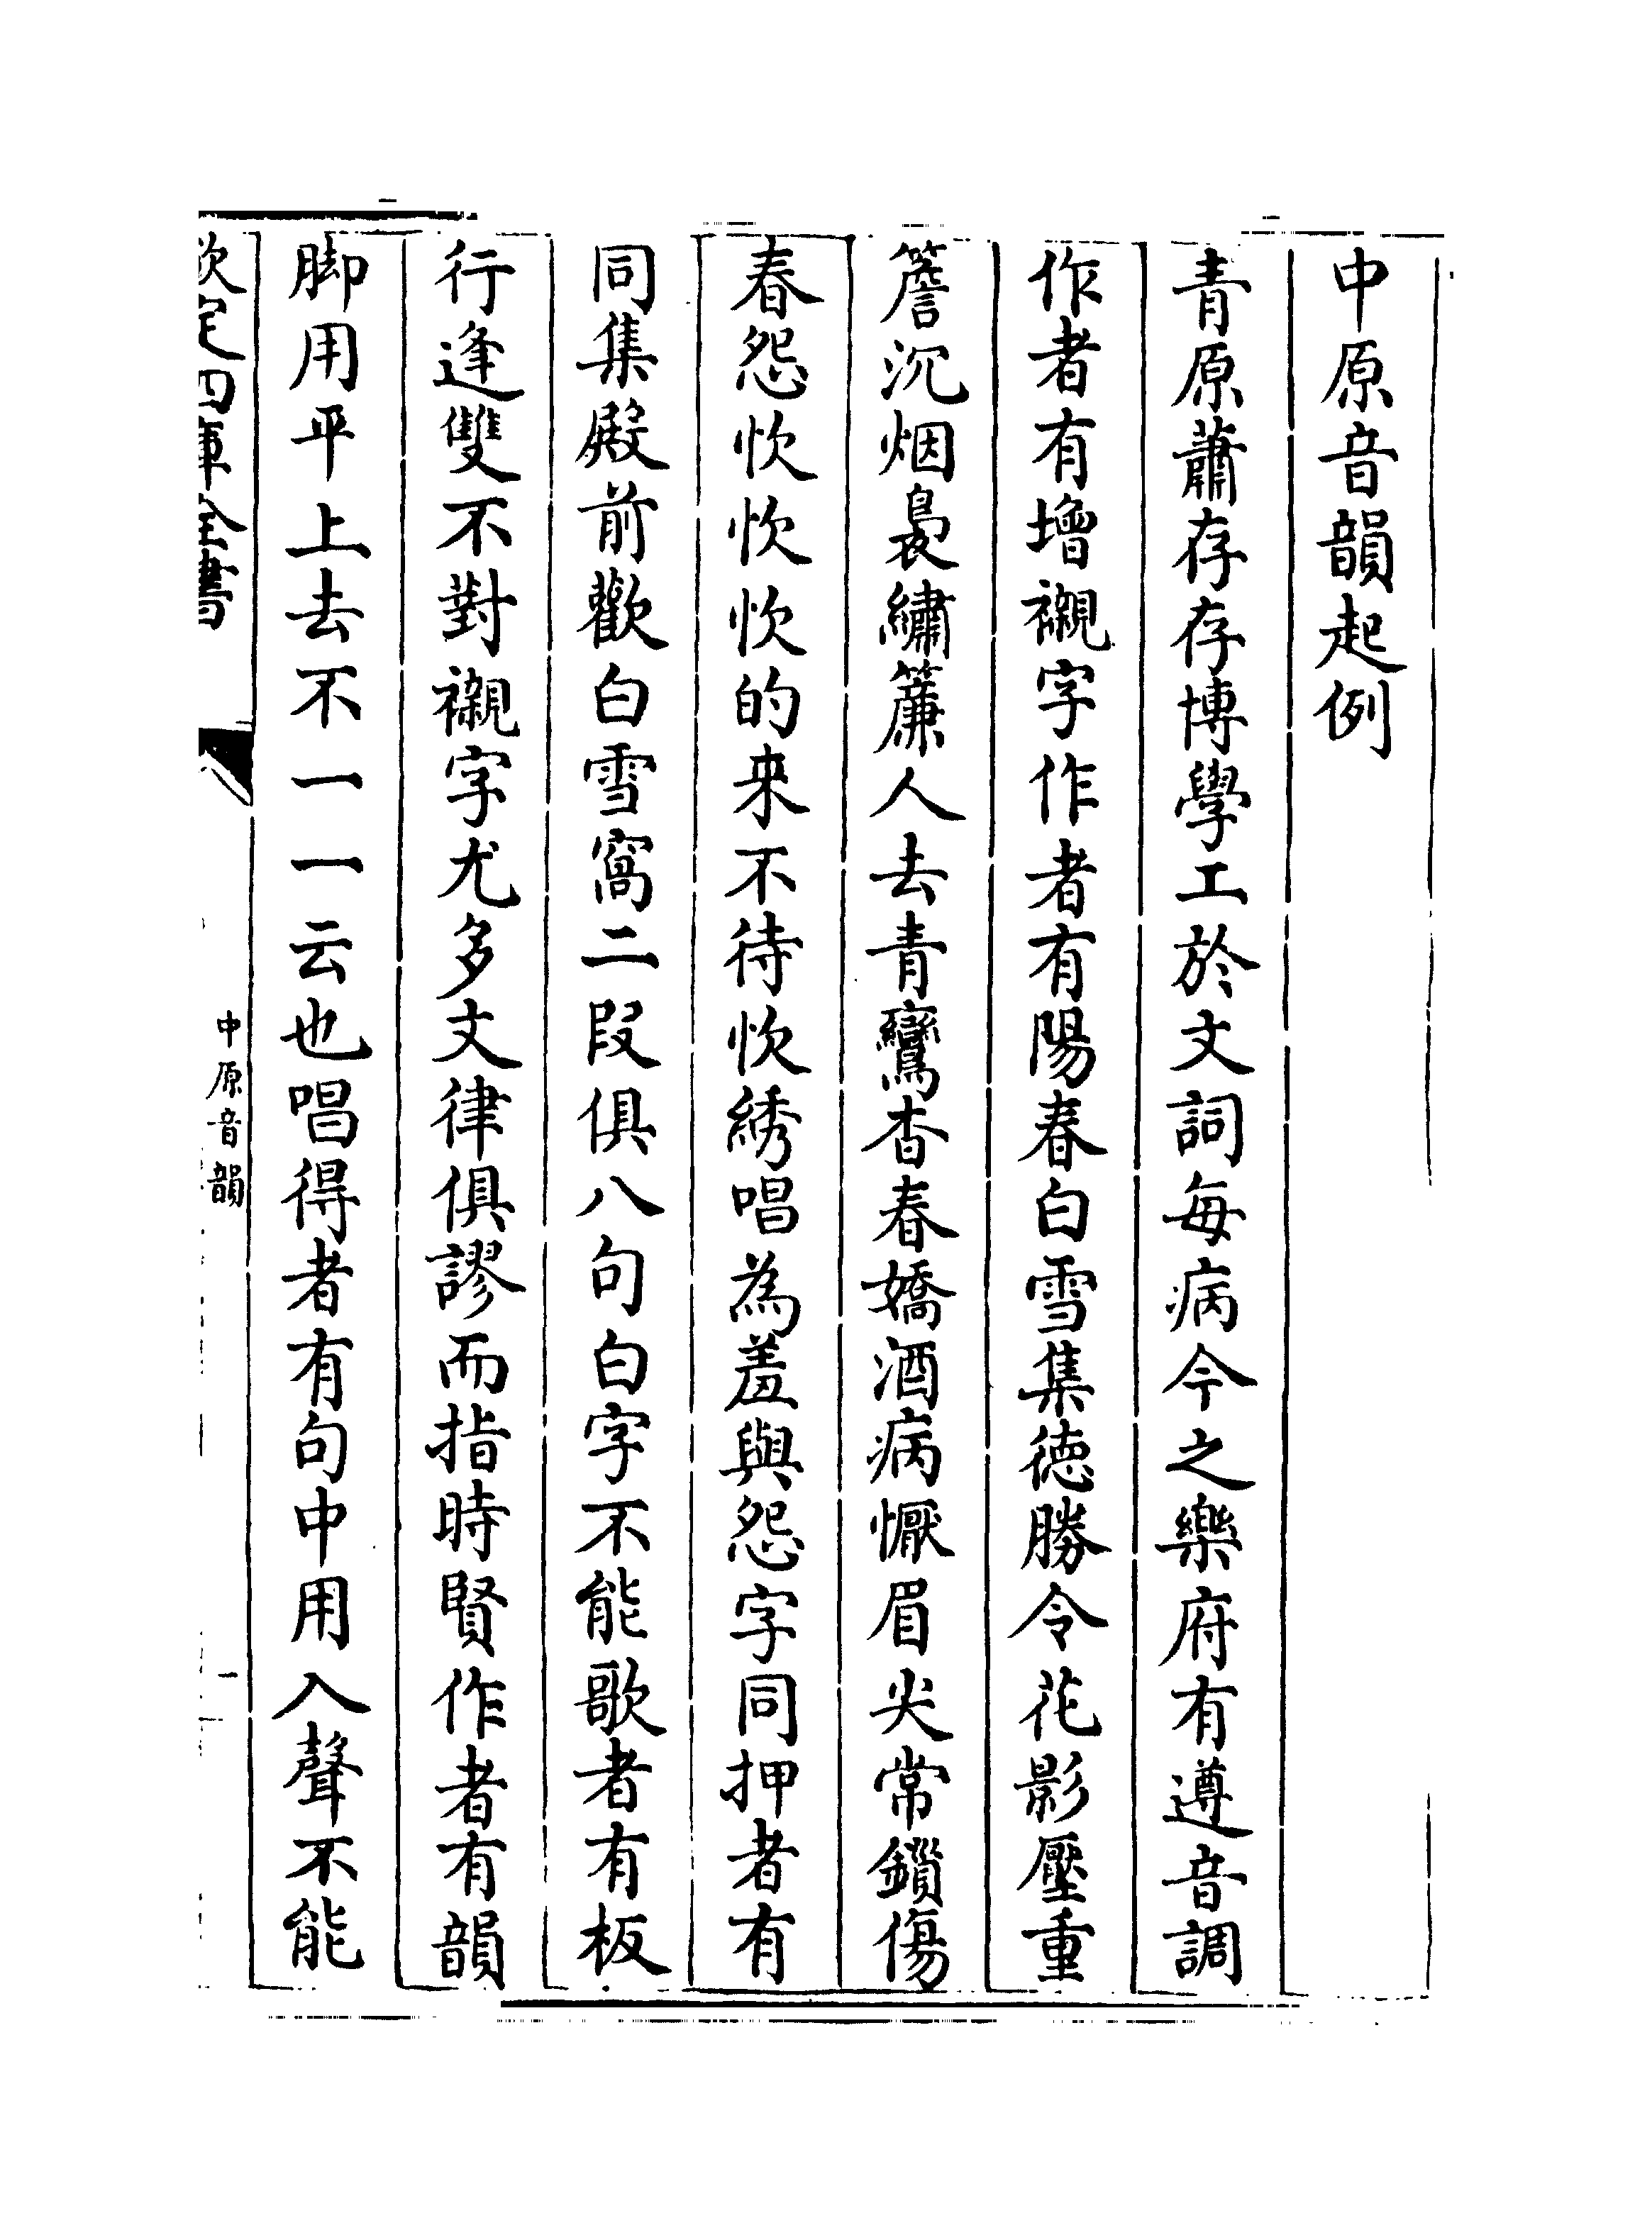 中原音韻起例
青原蕭存存博學工於文詞每病今之樂府有遵音調
作者有增襯字作者有陽春白雪集德勝令花影壓重
簷沉烟裊繡簾人去青鸞杳春嬌酒病懨眉尖常鎻傷
春怨忺忺忺的来不待忺綉唱為羞與怨字同押者有
同集殿前歡白雪窩二段俱八句白字不能歌者有板
行逢雙不對襯字尤多文律俱謬而指時賢作者有韻
脚用平上去不一一云也唱得者有句中用入聲不能
欽定四庫全書
中原音韻
一